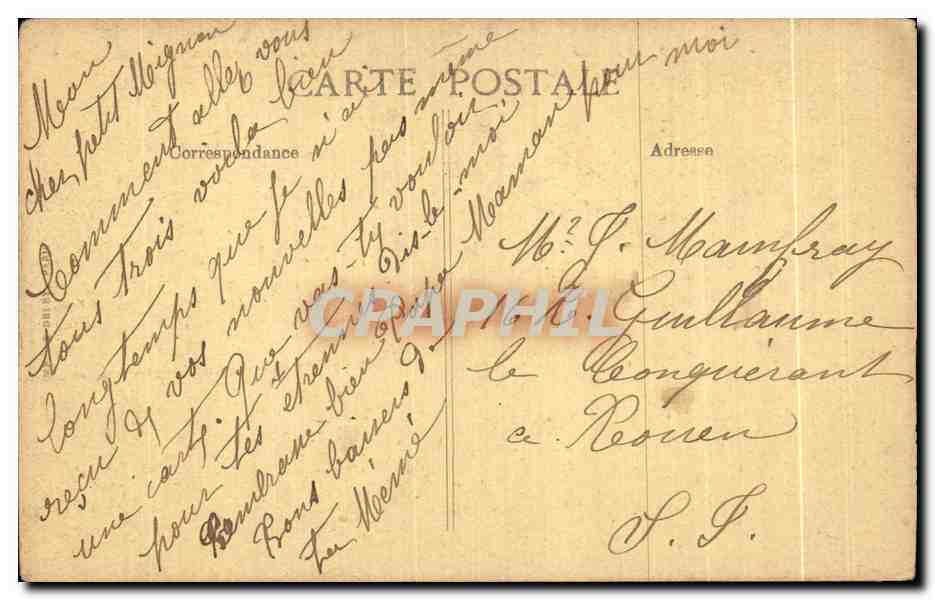 CARTE POSTALE
Correspondance
Adresse
Mon
cher petit Mignon
Comment allez vous
tous trois voila bien
longtemps que je n'ai
reçu de vos nouvelles pas même
une carte Que vas-ty vouloir
pour tes etrennes Dis-le-moi
Embrasse bien Papa Maman pour moi
Bons baisers de
ta Mémé
Mr J. Mamfray
16 R. Guillaume
le Conquérant
a Rouen
S. I.
CAPHIL